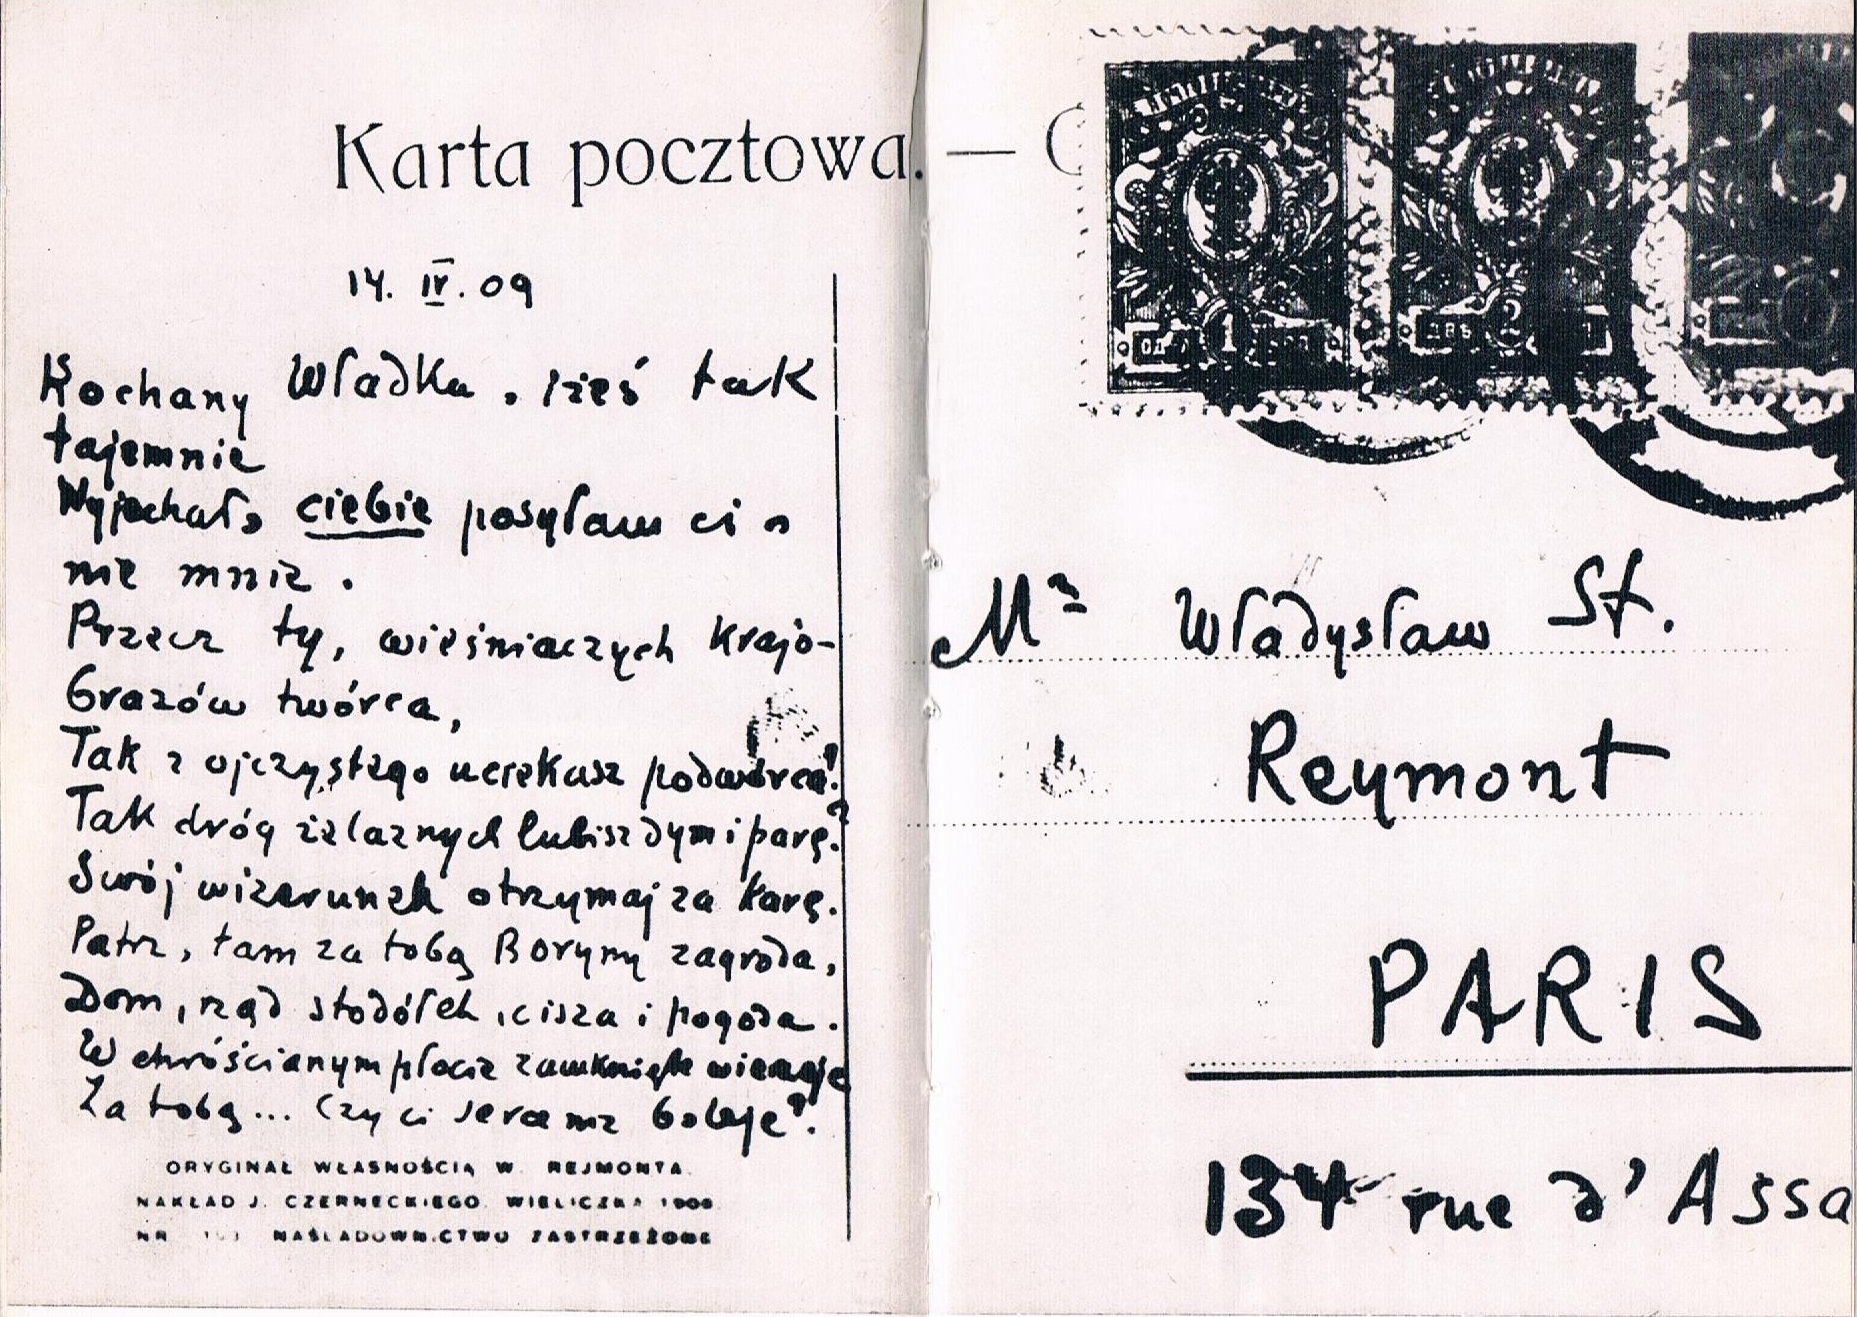 Karta pocztowa. — C
14. IV. 09
Kochany Władku, żeś tak
tajemnie
Wyjechał, ciebie posyłam ci a
nie mnie.
Przecz ty, wieśniaczych krajo-
brazów twórca,
Tak z ojczystego uciekasz podwórca?
Tak dróg żelaznych lubisz dym i parę?
Swój wizerunek otrzymaj za karę.
Patrz, tam za tobą Boryny zagroda,
Dom, rząd stodółek, cisza i pogoda.
W chróścianym płocie zamknięte wierzeje
Za tobą... Czy ci serce nie boleje?
ORYGINAŁ WŁASNOŚCIĄ W. REJMONTA.
NAKŁAD J. CZERNECKIEGO, WIELICZKA
NR NAŚLADOWNICTWO ZASTRZEŻONE
1
2
Mr Władysław St.
Reymont
PARIS
134 rue d'Assa